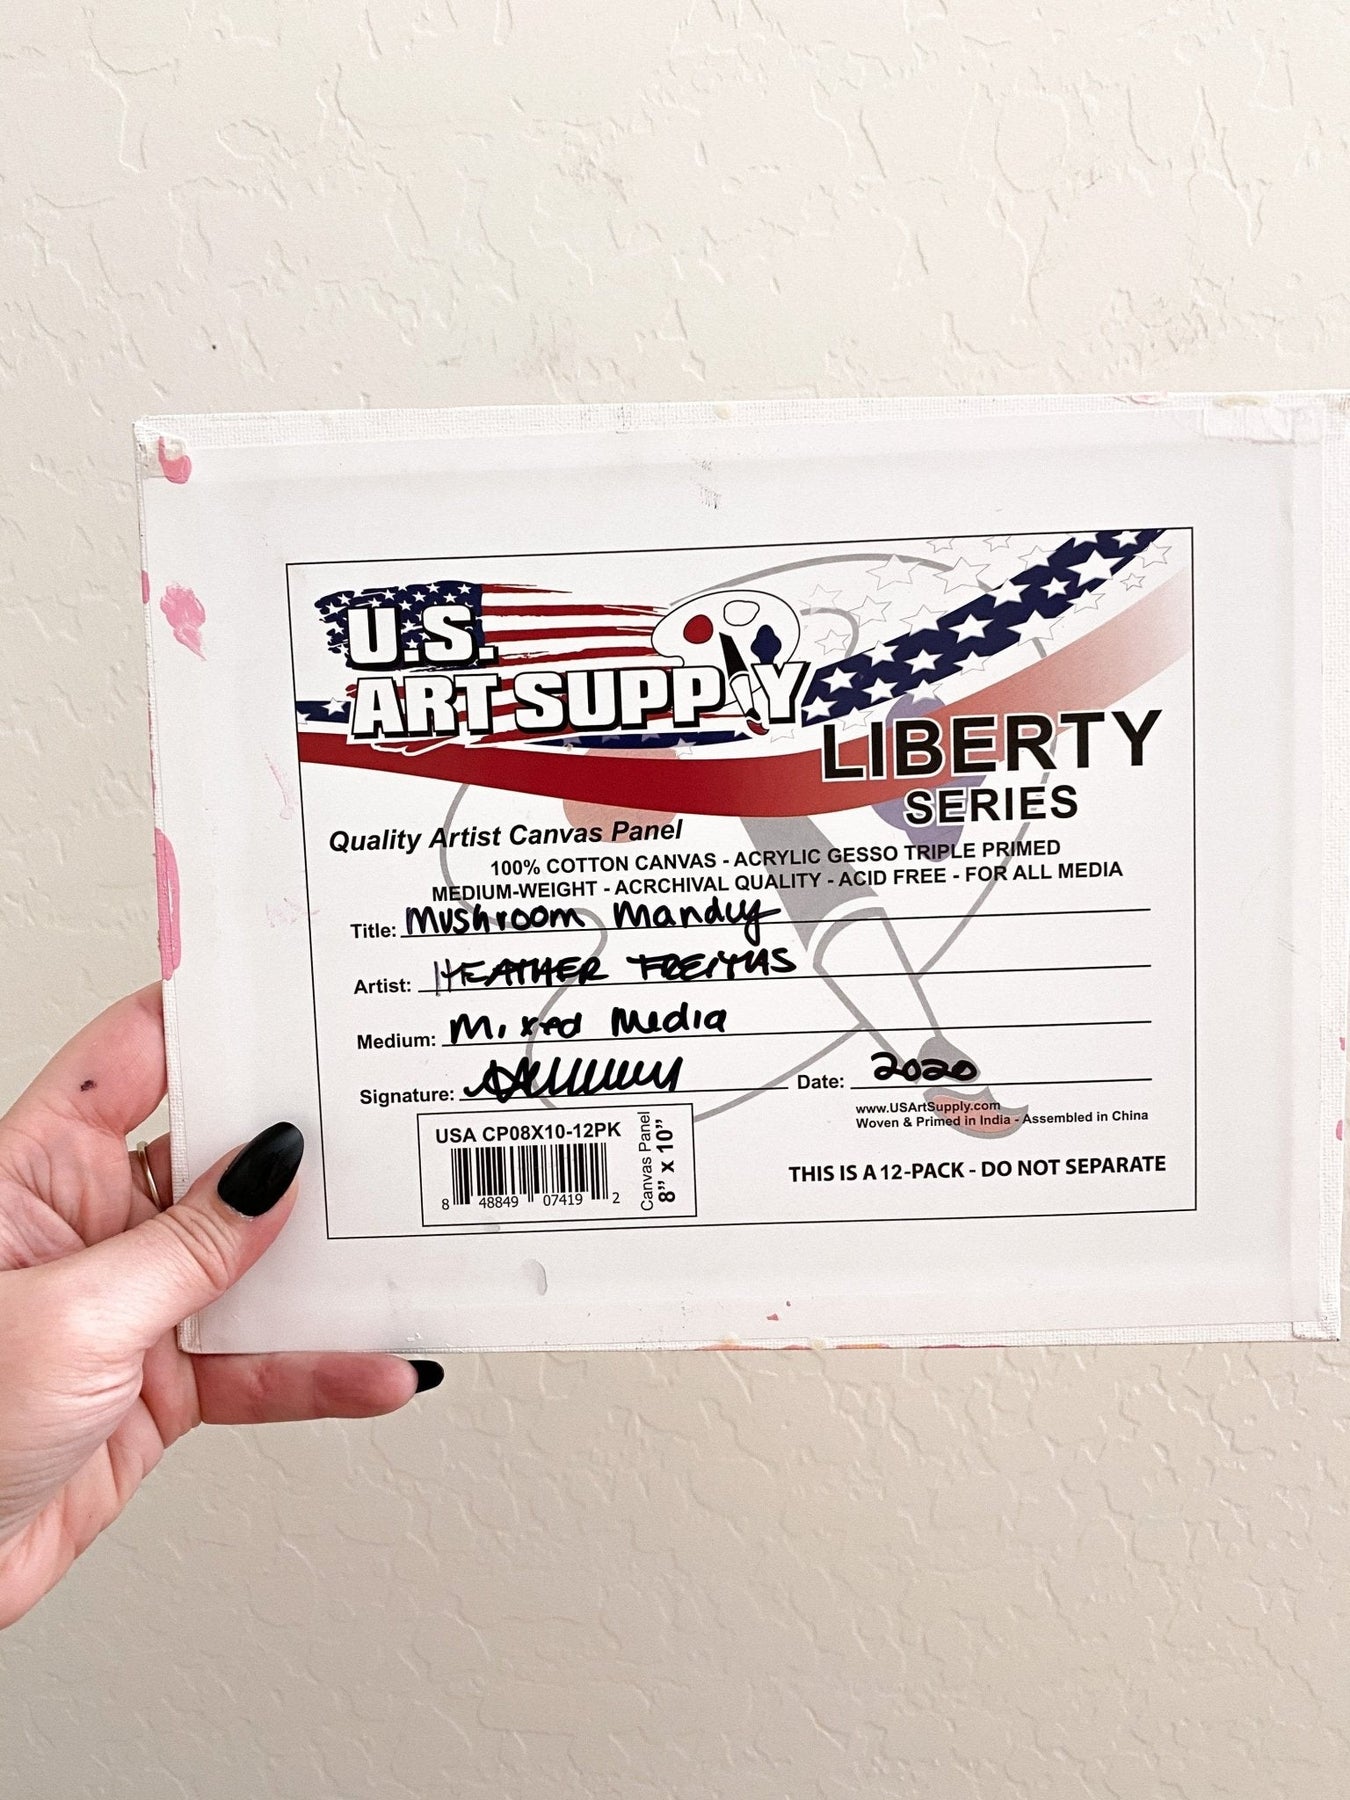 U.S.
ART SUPPLY
LIBERTY
SERIES
Quality Artist Canvas Panel
100% COTTON CANVAS - ACRYLIC GESSO TRIPLE PRIMED
MEDIUM-WEIGHT - ACRCHIVAL QUALITY - ACID FREE - FOR ALL MEDIA
Title: Mushroom Mandy
Artist: HEATHER FREITAS
Medium: Mixed Media
Signature: Date: 2020
www.USArtSupply.com
Woven & Primed in India - Assembled in China
USA CP08X10-12PK
8 48849 07419 2
Canvas Panel
8" x 10"
THIS IS A 12-PACK - DO NOT SEPARATE